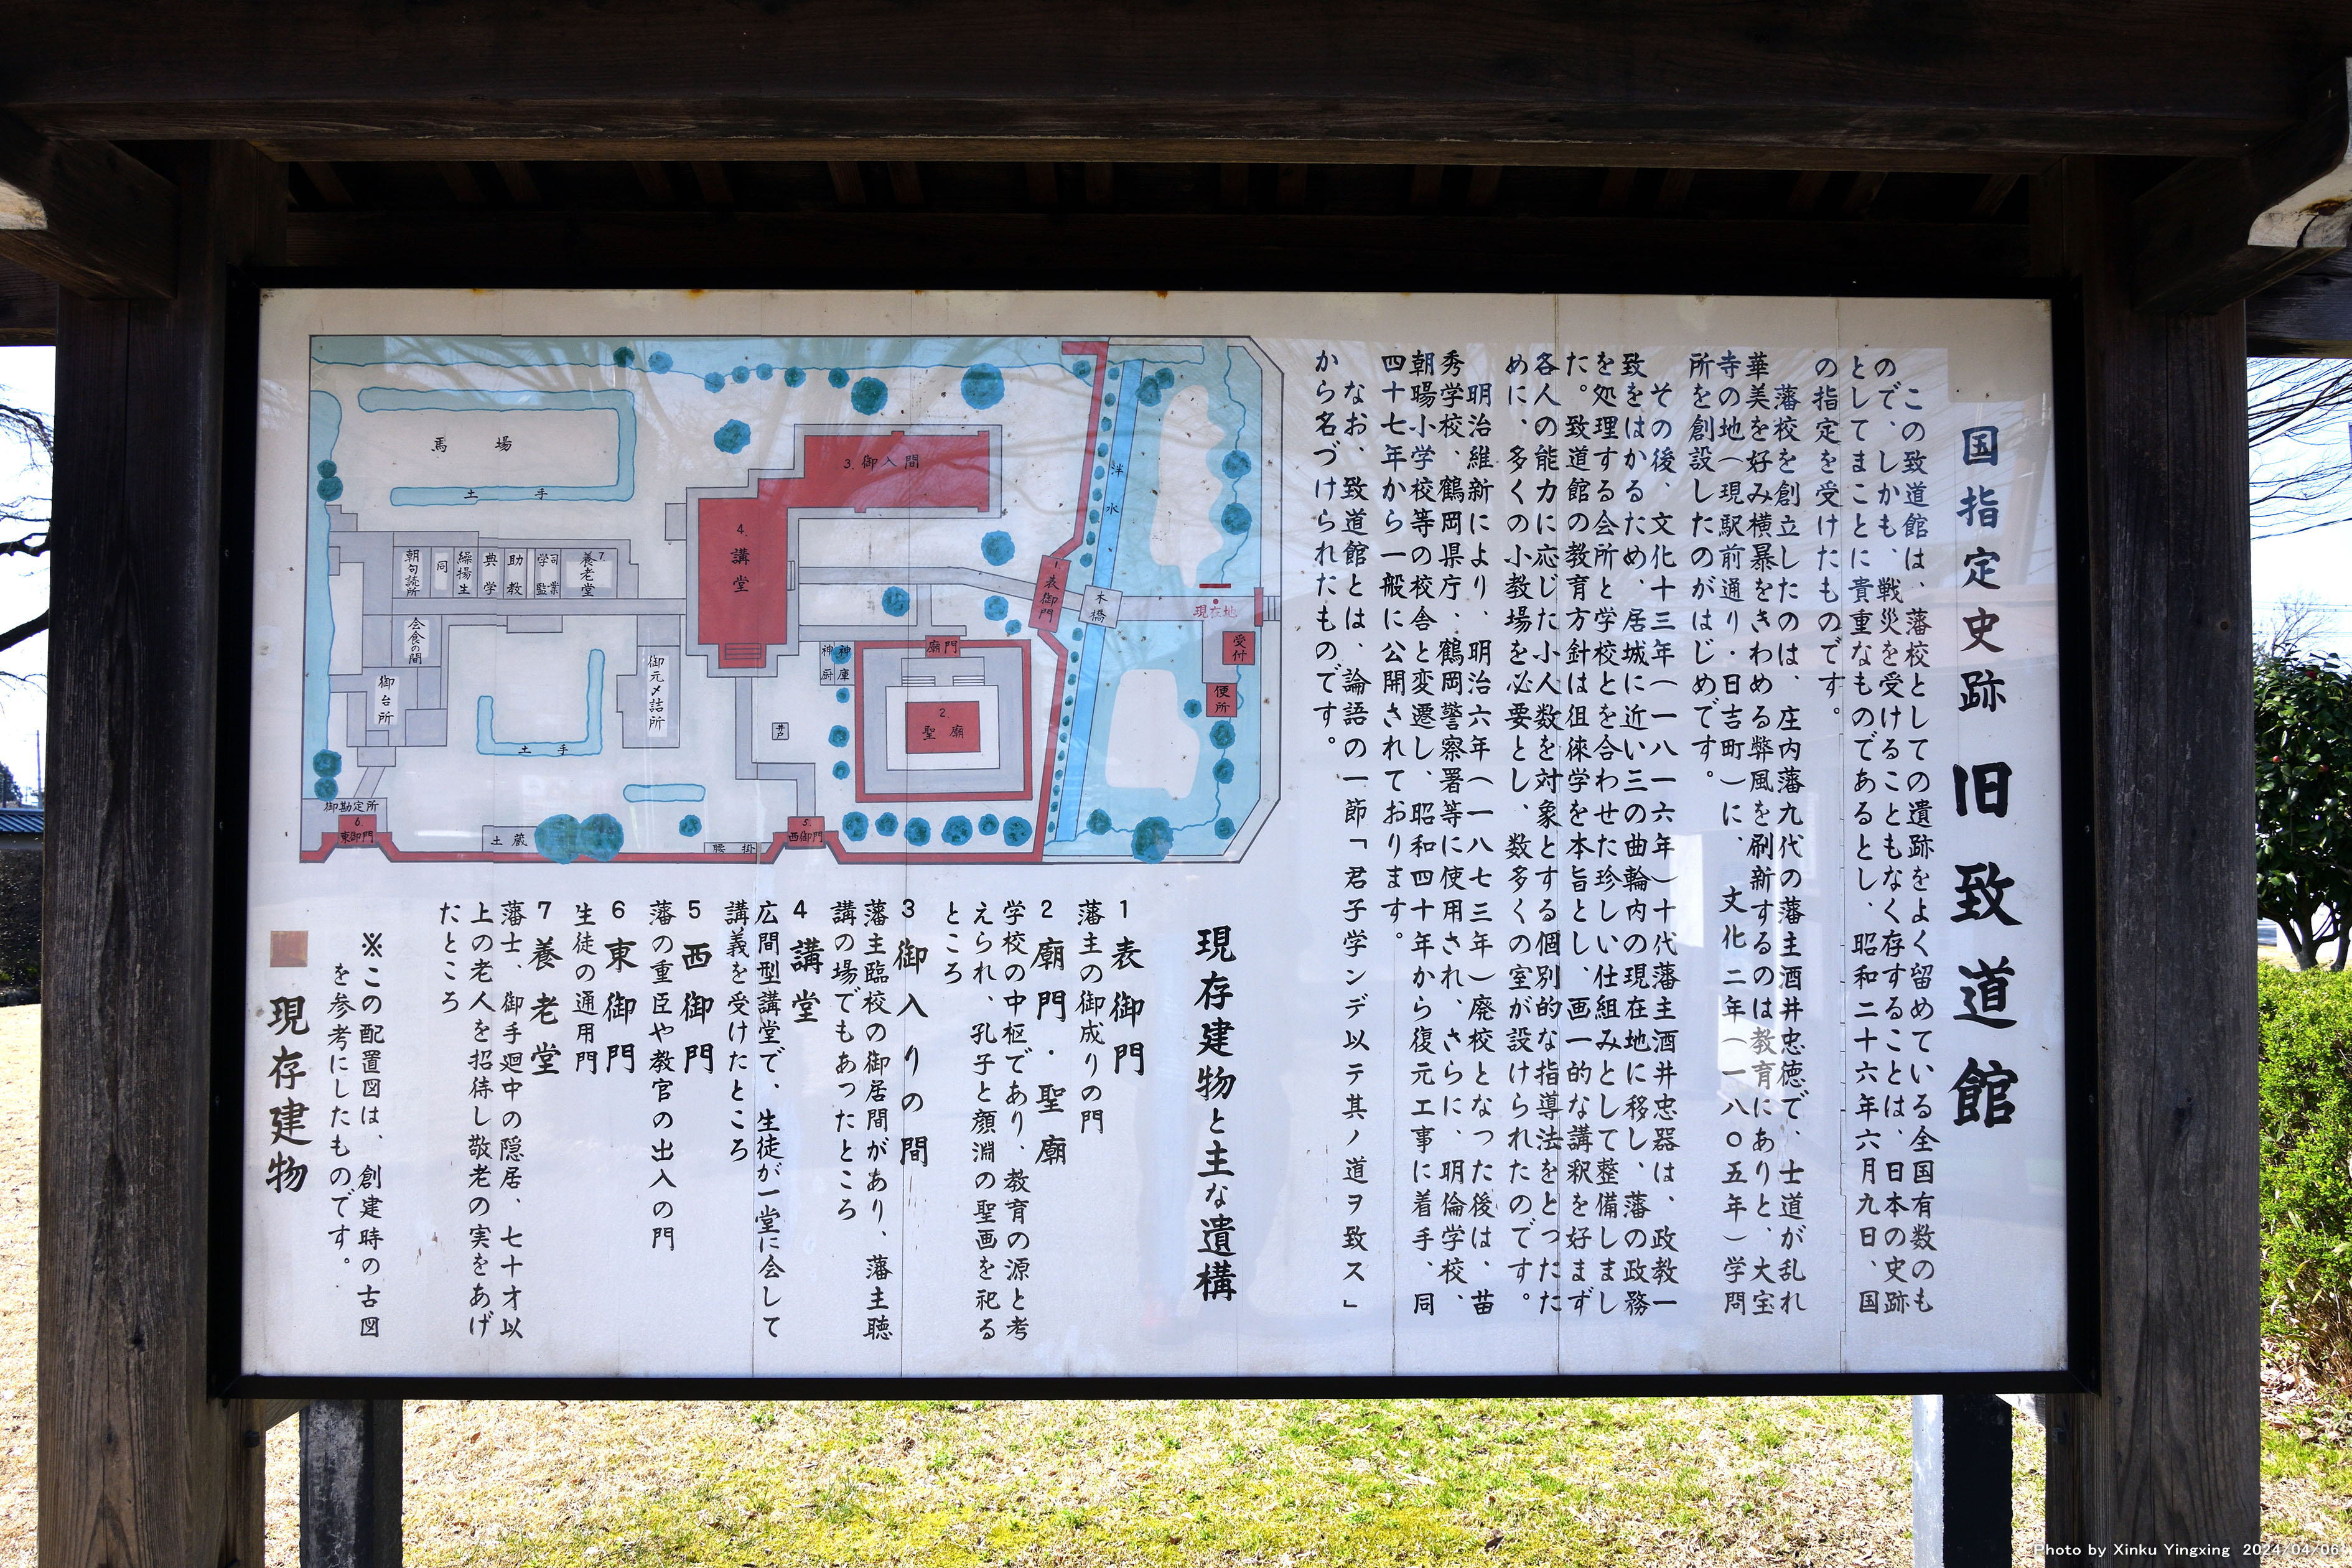 国指定史跡 旧致道館
この致道館は、藩校としての遺跡をよく留めている全国有数のも
ので、しかも、戦災を受けることもなく存することは、日本の史跡
としてまことに貴重なものであるとし、昭和二十六年六月九日、国
の指定を受けたものです。
藩校を創立したのは、庄内藩九代の藩主酒井忠徳で、士道が乱れ
華美を好み横暴をきわめる弊風を刷新するのは教育にありと、大宝
寺の地(現駅前通り・日吉町)に、文化二年(一八〇五年)学問
所を創設したのがはじめです。
その後、文化十三年(一八一六年)十代藩主酒井忠器は、政教一
致をはかるため、居城に近い三の曲輪内の現在地に移し、藩の政務
を処理する会所と学校とを合わせた珍しい仕組みとして整備しまし
た。致道館の教育方針は徂徠学を本旨とし、画一的な講釈を好まず
各人の能力に応じた小人数を対象とする個別的な指導法をとったた
めに、多くの小教場を必要とし、数多くの室が設けられたのです。
明治維新により、明治六年(一八七三年)廃校となった後は、苗
秀学校、鶴岡県庁、鶴岡警察署等に使用され、さらに、明倫学校、
朝暘小学校等の校舎と変遷し、昭和四十年から復元工事に着手、同
四十七年から一般に公開されております。
なお、致道館とは、論語の一節「君子学ンデ以テ其ノ道ヲ致ス」
から名づけられたものです。
馬場
土手
3.御入間
4.講堂
泮水
朝句読所
同
繰揚生
典学
助教
学監
司業
7.養老堂
1.表御門
木橋
現在地
受付
便所
会食の間
御台所
御元〆詰所
神厨
神庫
廟門
2.聖廟
井戸
土手
御勘定所
6.東御門
土蔵
腰掛
5.西御門
現存建物と主な遺構
1 表御門
藩主の御成りの門
2 廟門・聖廟
学校の中枢であり、教育の源と考
えられ、孔子と顔淵の聖画を祀る
ところ
3 御入りの間
藩主臨校の御居間があり、藩主聴
講の場でもあったところ
4 講堂
広間型講堂で、生徒が一堂に会して
講義を受けたところ
5 西御門
藩の重臣や教官の出入の門
6 東御門
生徒の通用門
7 養老堂
藩士、御手廻中の隠居、七十才以
上の老人を招待し敬老の実をあげ
たところ
※この配置図は、創建時の古図
を参考にしたものです。
現存建物
Photo by Xinku Yingxing 2024/04/06